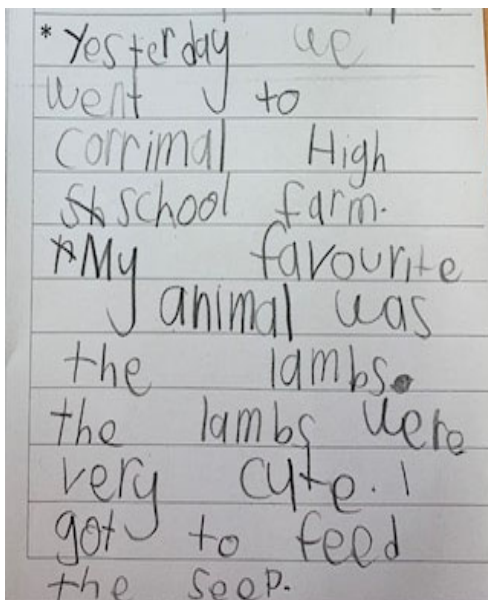 * Yesterday we
went to
Corrimal High
school farm.
* My favourite
animal was
the lambs.
the lambs were
very cute. I
got to feed
the seep.